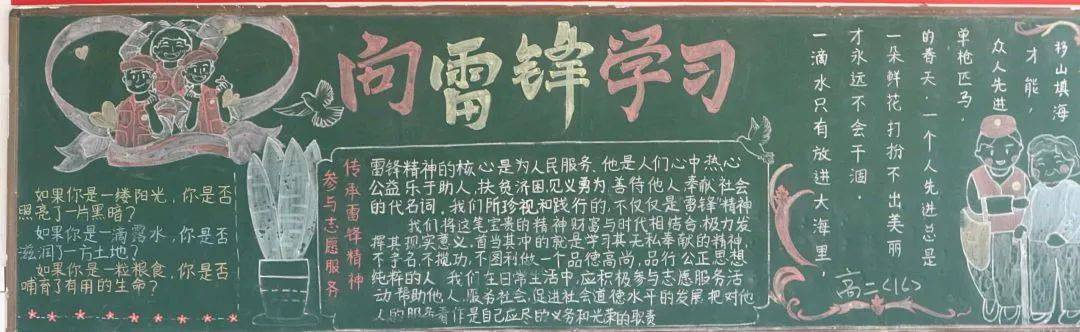 向雷锋学习
如果你是一缕阳光,你是否
照亮了一片黑暗?
如果你是一滴露水,你是否
滋润了一方土地?
如果你是一粒粮食,你是否
哺育了有用的生命?
传承雷锋精神
参与志愿服务
雷锋精神的核心是为人民服务、他是人们心中热心
公益乐于助人,扶贫济困见义勇为,善待他人奉献社会
的代名词。我们所珍视和践行的,不仅仅是"雷锋"精神
我们将这笔宝贵的精神财富与时代相结合极力发
挥其现实意义,首当其中的就是学习其无私奉献的精神,
不争名不揽功,不图利做一个品德高尚,品行公正思想
纯粹的人,我们在日常生活中,应积极参与志愿服务活
动帮助他人,服务社会,促进社会道德水平的发展把对他
人的服务看作是自己应尽的义务和光荣的职责
一滴水只有放进大海里
才永远不会干涸,
一朵鲜花打扮不出美丽
的春天·一个人先进总是
单枪匹马,
众人先进
才能,
移山填海
高二(16)